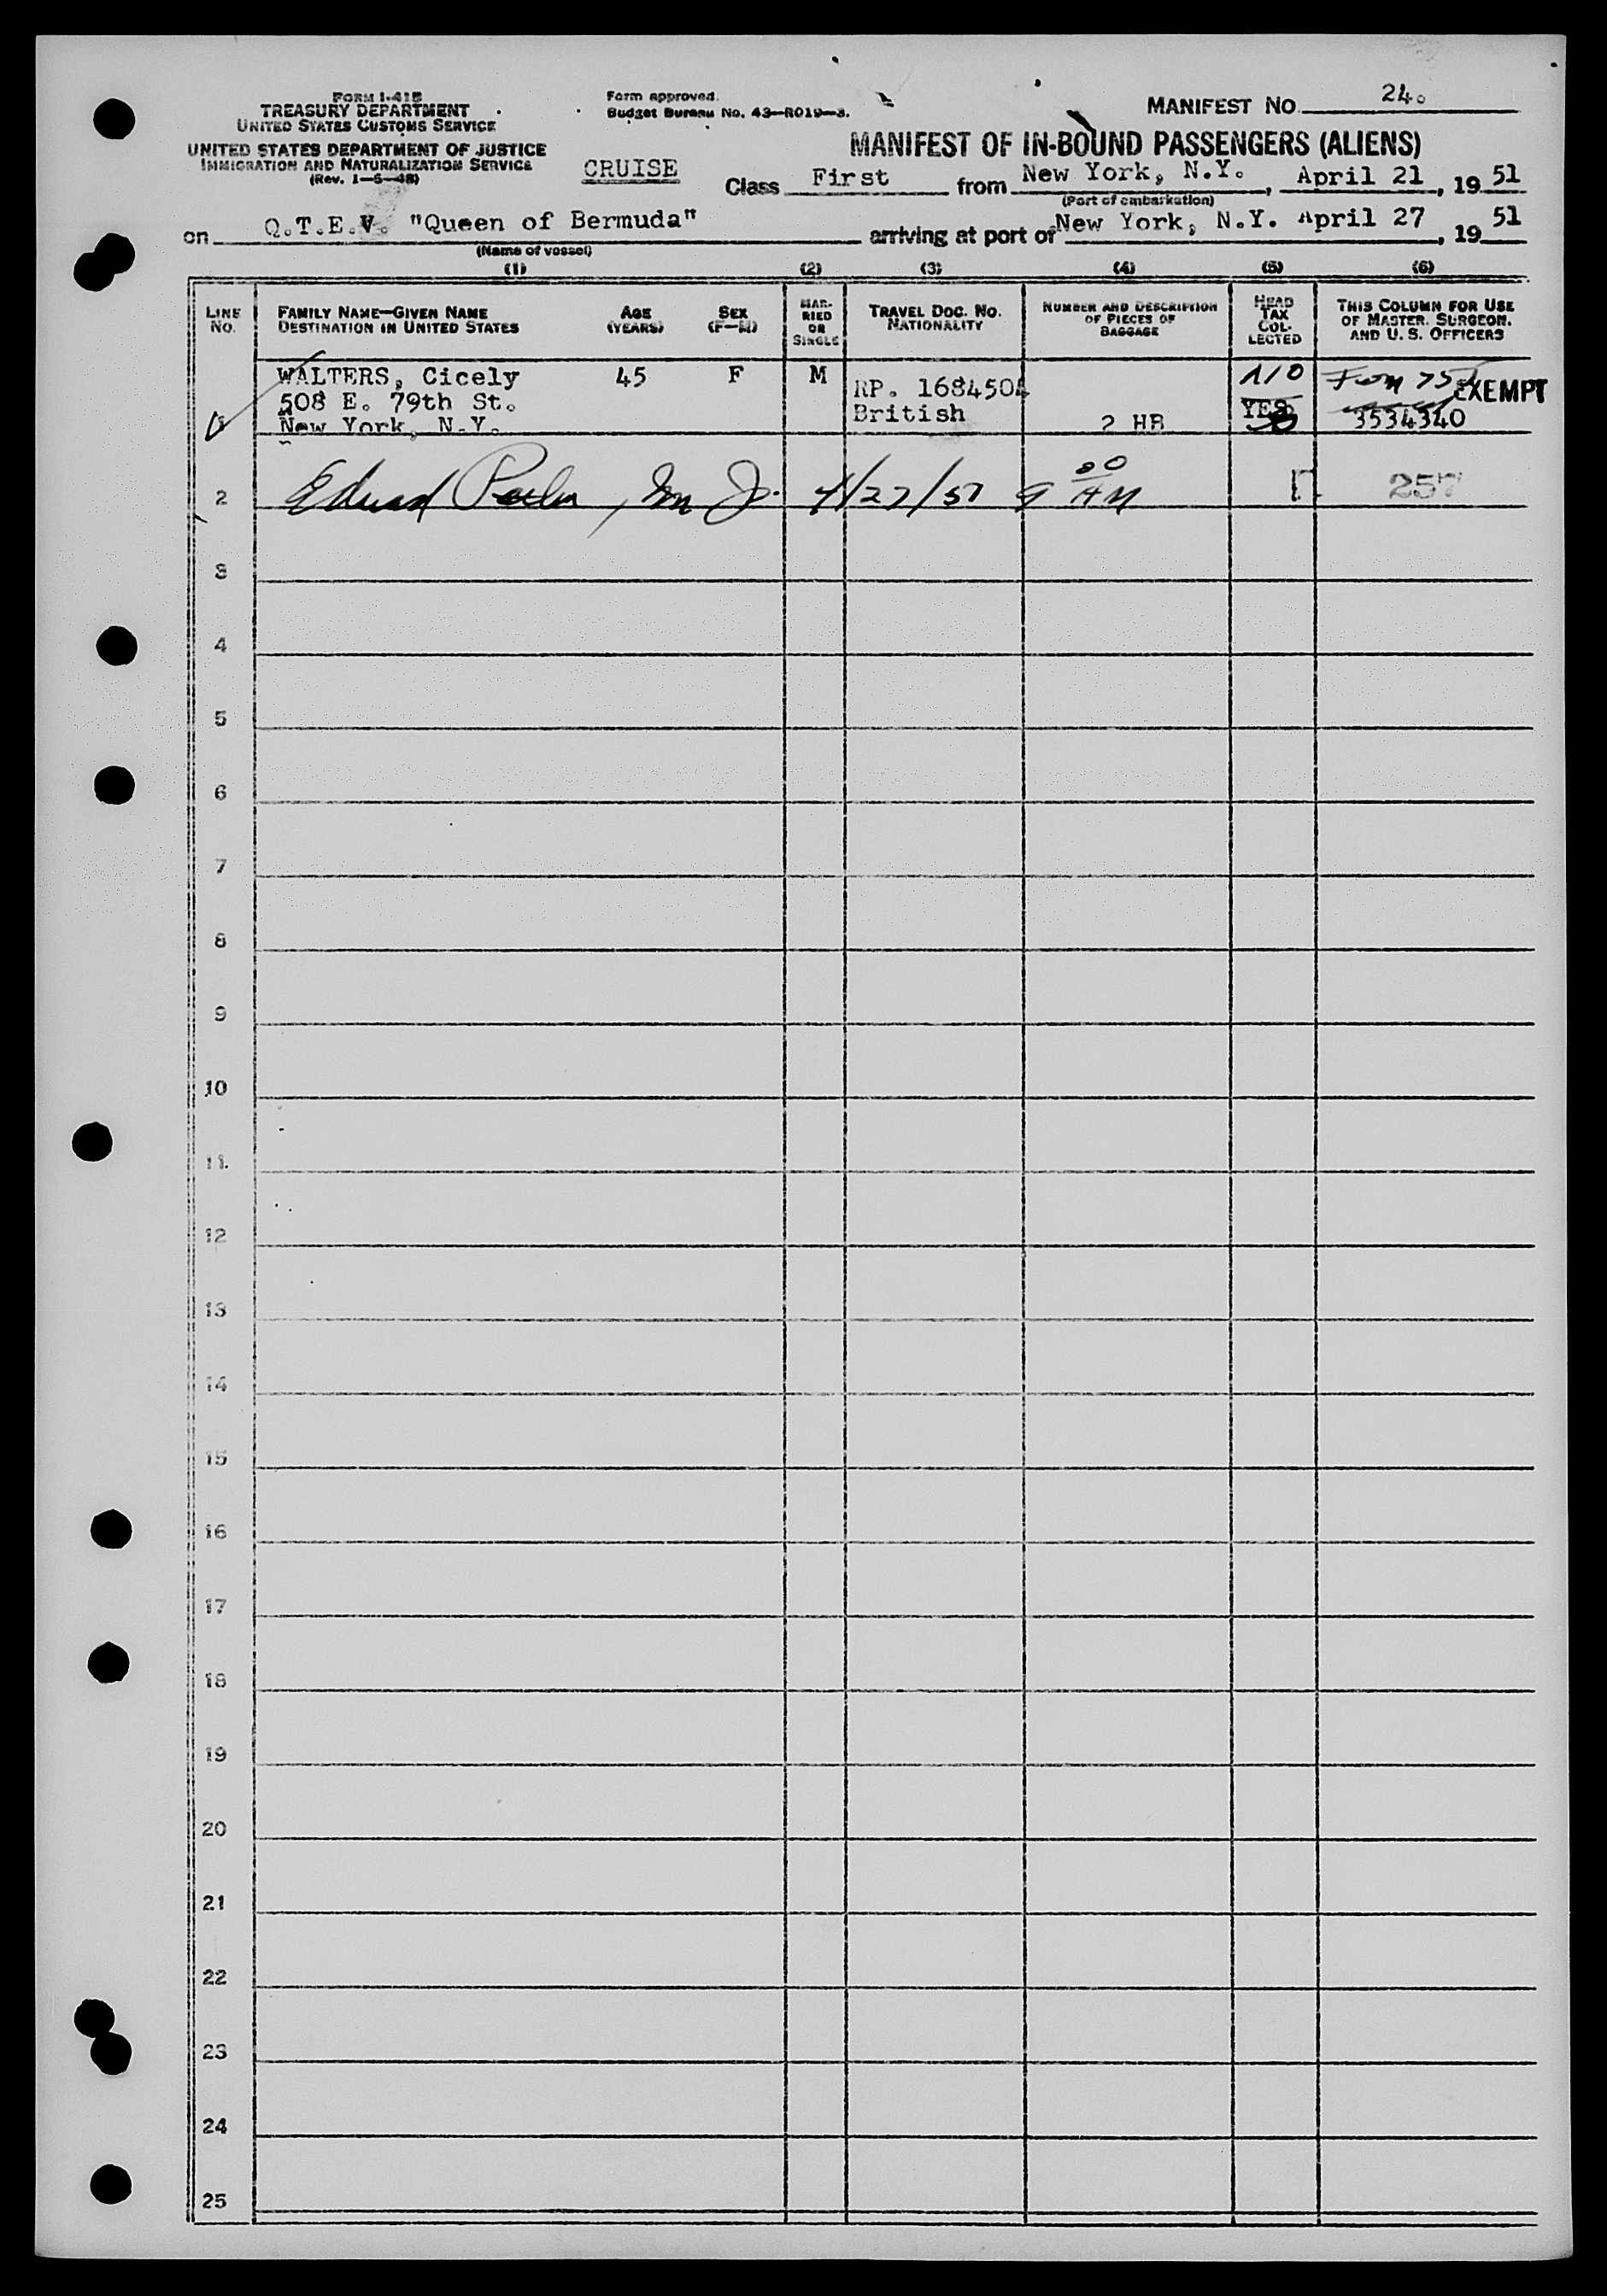 FORM I-415
TREASURY DEPARTMENT
UNITED STATES CUSTOMS SERVICE
UNITED STATES DEPARTMENT OF JUSTICE
IMMIGRATION AND NATURALIZATION SERVICE
(Rev. 1-5-48)
Form approved.
Budget Bureau No. 43-R019-3.
MANIFEST NO. 24.
MANIFEST OF IN-BOUND PASSENGERS (ALIENS)
CRUISE
Class First from New York, N.Y., April 21, 19 51
(Port of embarkation)
on Q.T.E.V. "Queen of Bermuda" arriving at port of New York, N.Y. April 27, 19 51
(Name of vessel)
(1) (2) (3) (4) (5) (6)
LINE NO.
FAMILY NAME—GIVEN NAME
DESTINATION IN UNITED STATES
AGE (YEARS)
SEX (F-M)
MARRIED OR SINGLE
TRAVEL DOC. NO.
NATIONALITY
NUMBER AND DESCRIPTION OF PIECES OF BAGGAGE
HEAD TAX COLLECTED
THIS COLUMN FOR USE OF MASTER, SURGEON, AND U. S. OFFICERS
WALTERS, Cicely 45 F M
508 E. 79th St.
New York, N.Y.
RP. 1684504
British
2 HB
YES
EXEMPT
3534340
2 Edward 4/27/51 9 00 AM 257
3
4
5
6
7
8
9
10
11
12
13
14
15
16
17
18
19
20
21
22
23
24
25